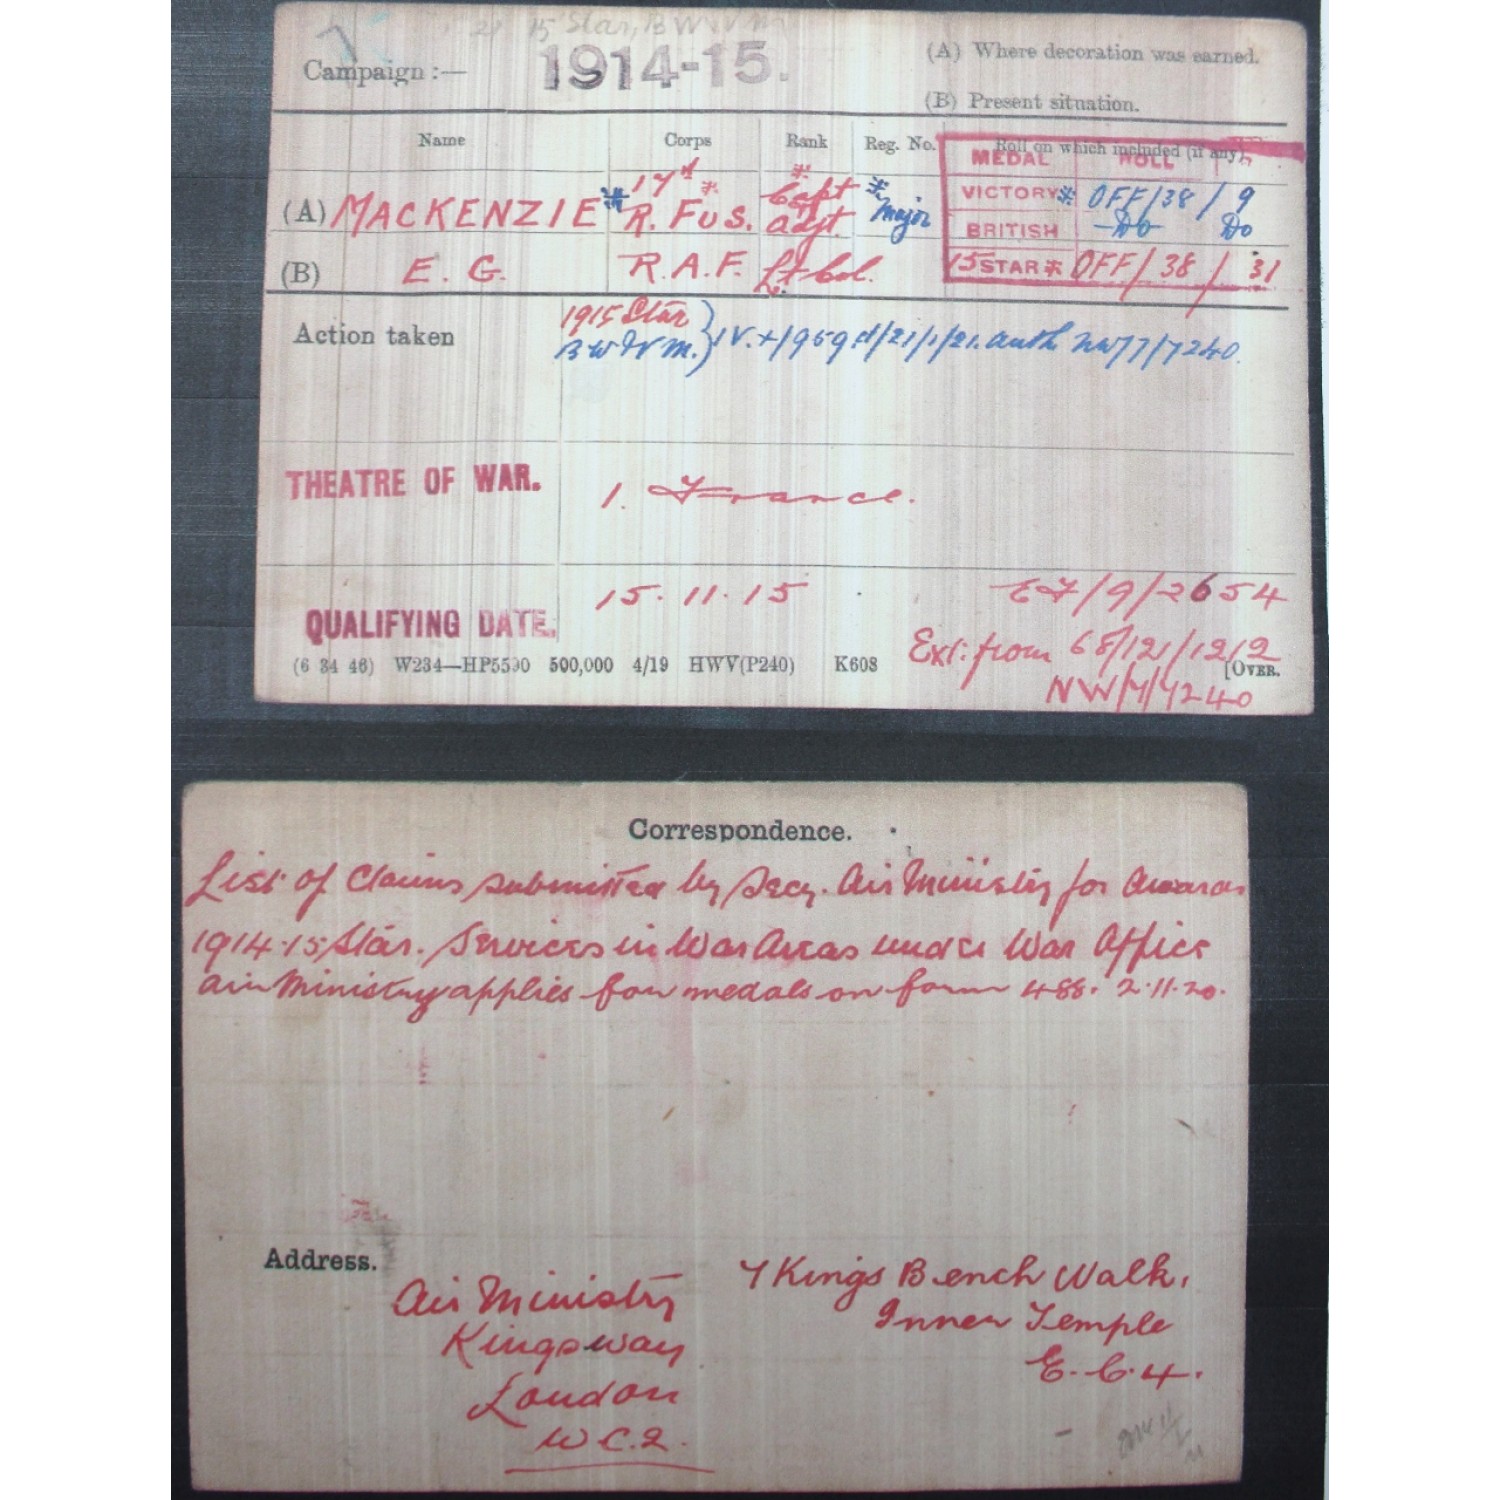 15 Star, B W & V M
Campaign :— 1914-15.
(A) Where decoration was earned.
(B) Present situation.
Name Corps Rank Reg. No. Roll on which included (if any).
MEDAL ROLL
(A) MACKENZIE * 17th * R. FUS. * Capt Adjt. * Major
VICTORY * OFF/38/ 9
BRITISH Do Do
(B) E. G. R.A.F. Lt Col.
15 STAR * OFF/38/ 31
Action taken
1915 Star
B W & V M. } IV. X/959 d/21/1/21. auth NW/7/7240.
THEATRE OF WAR. 1. France.
QUALIFYING DATE. 15.11.15
EF/9/2654
Ext: from 68/121/1212
NW/7/7240
(6 34 46) W234—HP5590 500,000 4/19 HWV(P240) K608 [OVER.
Correspondence.
List of Claims submitted by Secy. Air Ministry for Award
1914.15 Star. Services in War Areas under War Office
Air Ministry applies for medals on form 488. 2.11.20.
Address.
Air Ministry
Kingsway
London
W C.2.
7 Kings Bench Walk,
Inner Temple
E. C. 4.